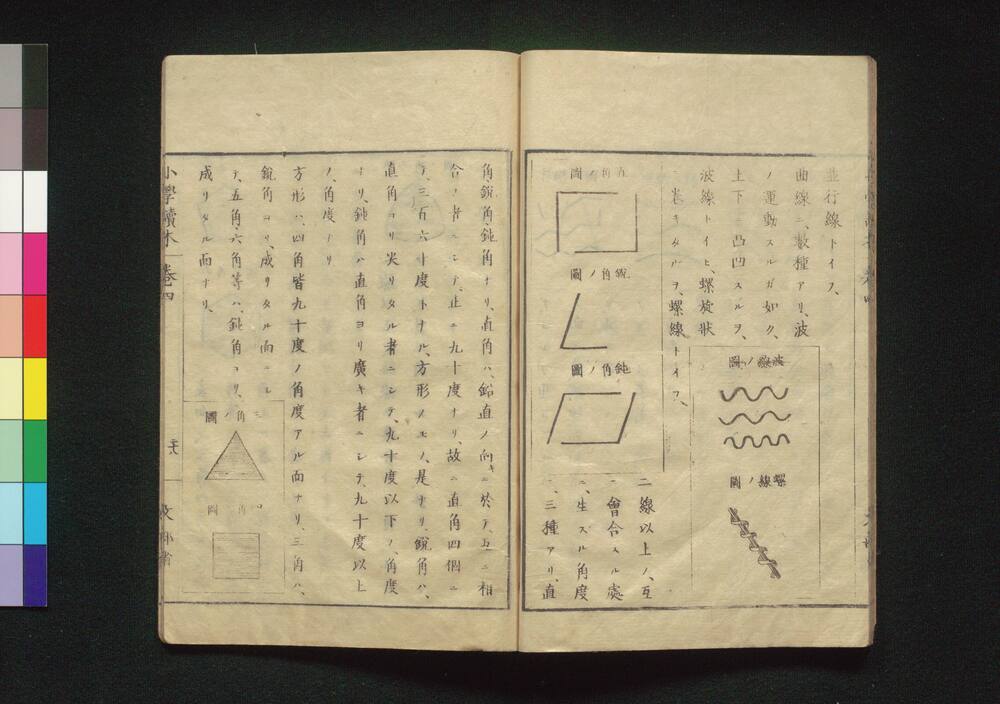 並行線トイフ、
曲線ニ、數種アリ、波
ノ運動スルガ如ク、
上下ニ凸凹スルヲ、
波線トイヒ、螺旋狀
ニ卷キタルヲ、螺線トイフ、
波線ノ圖
螺線ノ圖
直角ノ圖
鋭角ノ圖
鈍角ノ圖
二線以上ノ、互
ニ會合スル處
ニ、生ズル角度
ニ、三種アリ、直
角、鋭角、鈍角ナリ、直角ハ、鉛直ノ向キニ於テ、互ニ相
合フ者ニシテ、正ニ九十度ナリ、故ニ直角四個ニ
テ、三百六十度トナル、方形ノモノ、是ナリ、鋭角ハ、
直角ヨリ尖リタル者ニシテ、九十度以下ノ、角度
ナリ、鈍角ハ直角ヨリ廣キ者ニシテ、九十度以上
ノ、角度ナリ
方形ハ、四角皆九十度ノ角度アル面ナリ、三角ハ、
鋭角ヨリ、成リタル面ニシ
テ、五角、六角等ハ、鈍角ヨリ、
成リタル面ナリ、
三角ノ圖
四角ノ圖
小學讀本 卷四
文部省